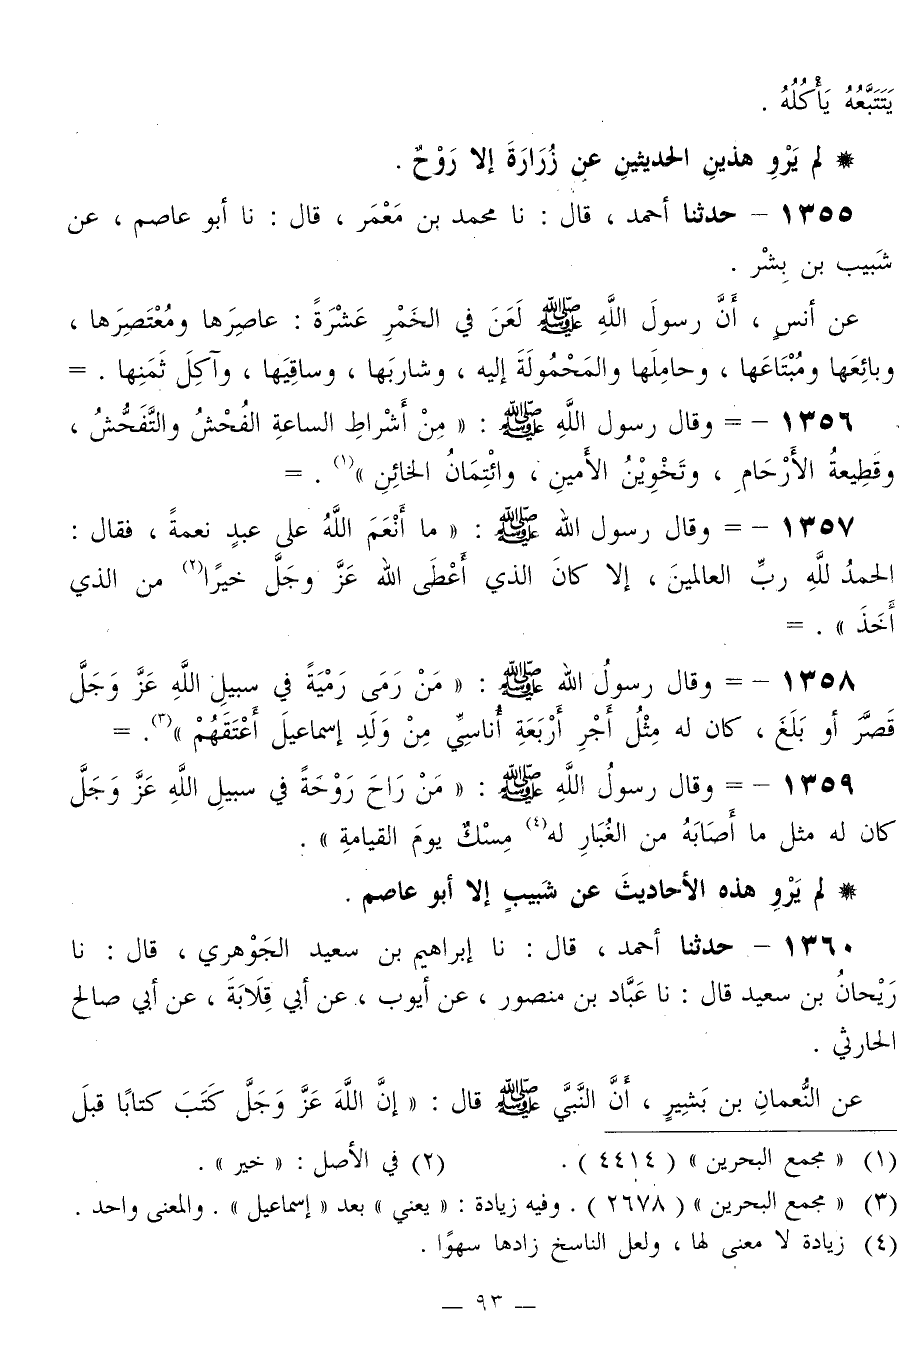 يَتَتَبَّعُهُ يَأْكُلُهُ .
* لم يَرْوِ هذينِ الحديثينِ عن زُرَارَةَ إلا رَوْحٌ .
١٣٥٥ – حدثنا أحمد ، قال : نا محمد بن مَعْمَر ، قال : نا أبو عاصم ، عن
شَبيب بن بِشْر .
عن أنسٍ ، أَنَّ رسولَ اللَّهِ ﷺ لَعَنَ في الخَمْرِ عَشْرَةً : عاصِرَها ومُعْتَصِرَها ،
وبائِعَها ومُبْتَاعَها ، وحامِلَها والمَحْمُولَةَ إليه ، وشاربَها ، وساقِيَها ، وآكِلَ ثَمَنِها . =
١٣٥٦ – = وقال رسول اللَّهِ ﷺ : « مِنْ أَشْراطِ الساعةِ الفُحْشُ والتَّفَحُّشُ ،
وقَطِيعةُ الأَرْحَامِ ، وتَخْوِيْنُ الأَمينِ ، وائْتِمَانُ الخائِنِ »(١) . =
١٣٥٧ – = وقال رسول الله ﷺ : « ما أَنْعَمَ اللَّهُ على عبدٍ نعمةً ، فقال :
الحمدُ للَّهِ ربِّ العالمينَ ، إلا كانَ الذي أَعْطَى الله عَزَّ وجَلَّ خيرًا(٢) من الذي
أَخَذَ » . =
١٣٥٨ – = وقال رسولُ الله ﷺ : « مَنْ رَمَى رَمْيَةً في سبيلِ اللَّهِ عَزَّ وَجَلَّ
قَصَّرَ أو بَلَغَ ، كان له مِثْلُ أَجْرِ أَرْبَعَةِ أُناسِيِّ مِنْ وَلَدِ إسماعيلَ أَعْتَقَهُمْ »(٣). =
١٣٥٩ – = وقال رسولُ اللَّهِ ﷺ : « مَنْ رَاحَ رَوْحَةً في سبيلِ اللَّهِ عَزَّ وَجَلَّ
كان له مثل ما أَصَابَهُ من الغُبَارِ له(٤) مِسْكٌ يومَ القيامةِ » .
* لم يَرْوِ هذه الأحاديثَ عن شَبيبٍ إلا أبو عاصم .
١٣٦٠ – حدثنا أحمد ، قال : نا إبراهيم بن سعيد الجَوْهري ، قال : نا
رَيْحانُ بن سعيد قال : نا عَبَّاد بن منصور ، عن أيوب ، عن أبي قِلَابَةَ ، عن أبي صالح
الحارثي .
عن النُّعمانِ بن بَشيرٍ ، أَنَّ النَّبيَّ ﷺ قال : « إنَّ اللَّهَ عَزَّ وَجَلَّ كَتَبَ كتابًا قبلَ
(١) « مجمع البحرين » ( ٤٤١٤ ) . (٢) في الأصل : « خير » .
(٣) « مجمع البحرين » ( ٢٦٧٨ ) . وفيه زيادة : « يعني » بعد « إسماعيل » . والمعنى واحد .
(٤) زيادة لا معنى لها ، ولعل الناسخ زادها سهوًا .
– ٩٣ –